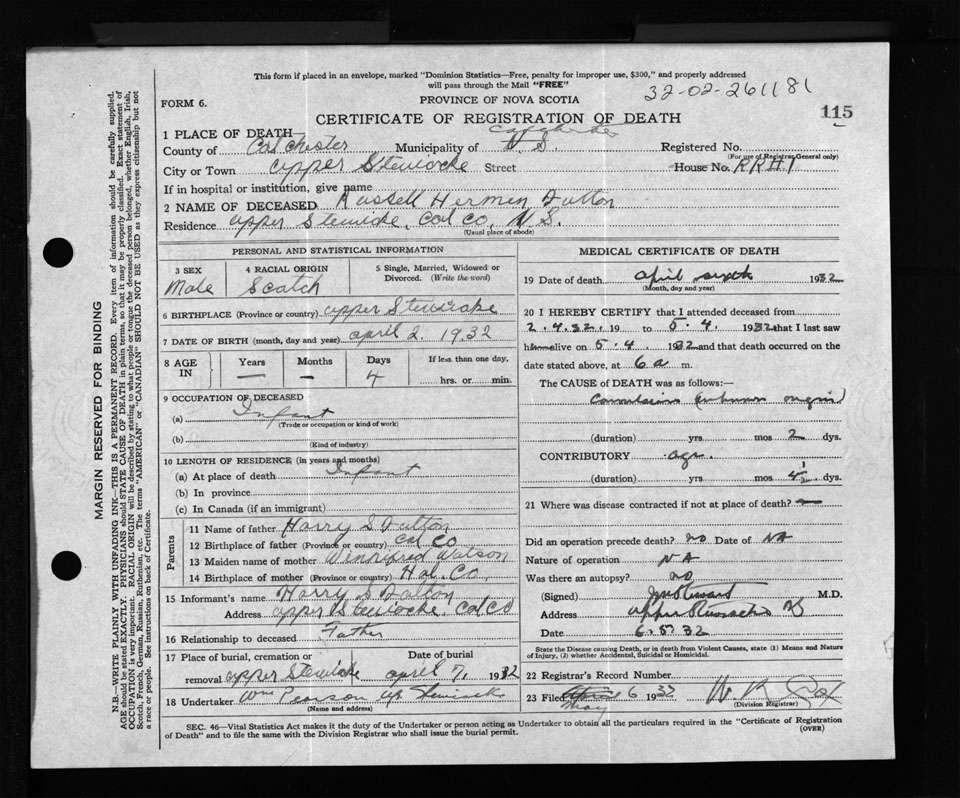 This form if placed in an envelope, marked "Dominion Statistics—Free, penalty for improper use, $300," and properly addressed
will pass through the Mail "FREE"
32-02-261181
FORM 6.
PROVINCE OF NOVA SCOTIA
115
CERTIFICATE OF REGISTRATION OF DEATH
1 PLACE OF DEATH
County of Colchester Municipality of Registered No.
(For use of Registrar General only)
City or Town Upper Stewiacke Street House No. RR#1
If in hospital or institution, give name
2 NAME OF DECEASED Russell Hermen Fulton
Residence Upper Stewicke, Col Co, N.S.
(Usual place of abode)
PERSONAL AND STATISTICAL INFORMATION
3 SEX 4 RACIAL ORIGIN 5 Single, Married, Widowed or
Divorced. (Write the word)
Male Scotch
6 BIRTHPLACE (Province or country) Upper Stewicke
7 DATE OF BIRTH (month, day and year) April 2, 1932
8 AGE IN Years Months Days If less than one day,
— — 4 hrs. or min.
9 OCCUPATION OF DECEASED
(a) Infant
(Trade or occupation or kind of work)
(b)
(Kind of industry)
10 LENGTH OF RESIDENCE (in years and months)
(a) At place of death Infant
(b) In province
(c) In Canada (if an immigrant)
Parents
11 Name of father Harry S Fulton
12 Birthplace of father (Province or country) Col Co
13 Maiden name of mother Winnifred Watson
14 Birthplace of mother (Province or country) Hal. Co.
15 Informant's name Harry S Fulton
Address Upper Stewiacke, Col Co
16 Relationship to deceased Father
17 Place of burial, cremation or Date of burial
removal Upper Stewicke April 7, 1932
18 Undertaker Wm Pearson Up Stewiacke
(Name and address)
MEDICAL CERTIFICATE OF DEATH
19 Date of death April sixth 1932
(Month, day and year)
20 I HEREBY CERTIFY that I attended deceased from
2.4.32. 19 to 5.4. 1932 that I last saw
him alive on 5.4. 1932 and that death occurred on the
date stated above, at 6 a m.
The CAUSE of DEATH was as follows:—
Convulsions (unknown origin)
(duration) yrs mos 2 dys.
CONTRIBUTORY age.
(duration) yrs mos 4½ dys.
21 Where was disease contracted if not at place of death? —
Did an operation precede death? no Date of NA
Nature of operation NA
Was there an autopsy? no
(Signed) M.D.
Address Upper Stewiacke NS
Date 6.5.32
State the Disease causing Death, or in death from Violent Causes, state (1) Means and Nature
of Injury, (2) whether Accidental, Suicidal or Homicidal.
22 Registrar's Record Number
23 Filed May 6 1932
(Division Registrar)
SEC. 46—Vital Statistics Act makes it the duty of the Undertaker or person acting as Undertaker to obtain all the particulars required in the "Certificate of Registration
of Death" and to file the same with the Division Registrar who shall issue the burial permit.
(OVER)
MARGIN RESERVED FOR BINDING
N.B.—WRITE PLAINLY WITH UNFADING INK—THIS IS A PERMANENT RECORD. Every item of information should be carefully supplied.
AGE should be stated EXACTLY. PHYSICIANS should STATE CAUSE OF DEATH in plain terms, so that it may be properly classified. Exact statement of
OCCUPATION is very important. RACIAL ORIGIN will be described by stating to what people or tongue the deceased person belonged, whether English, Irish,
Scotch, French, German, Russian, Ruthenian, etc. The terms "AMERICAN" or "CANADIAN" SHOULD NOT BE USED as they express citizenship but not
a race or people. See instructions on back of Certificate.